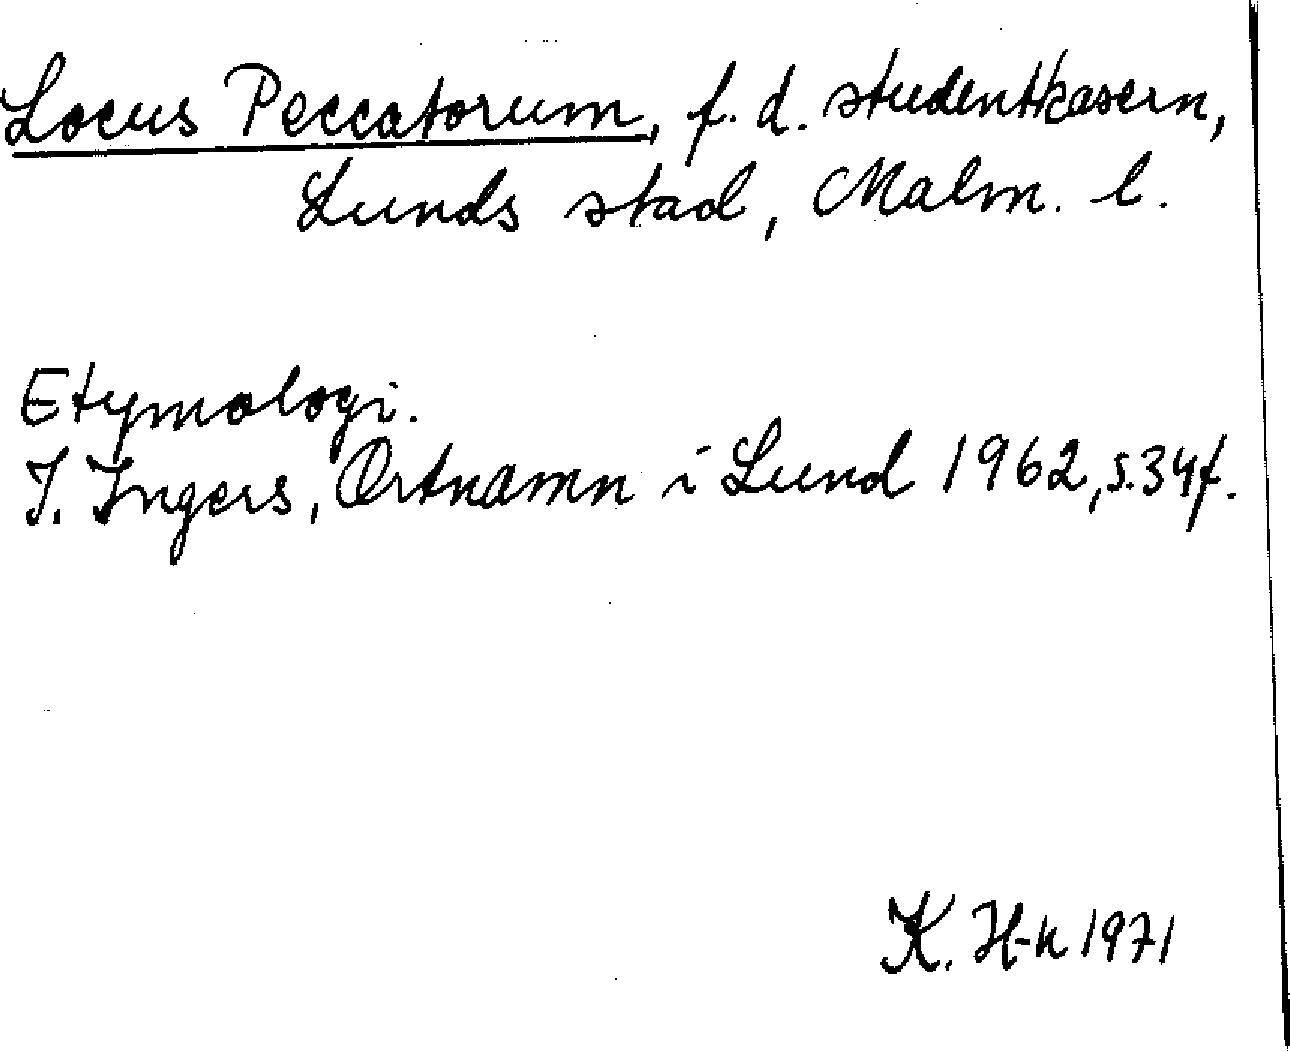 Locus Peccatorum, f. d. studentkasern,
Lunds stad, Malm. l.
Etymologi.
I. Ingers, Ortnamn i Lund 1962, s. 34f.
K. H-k 1971